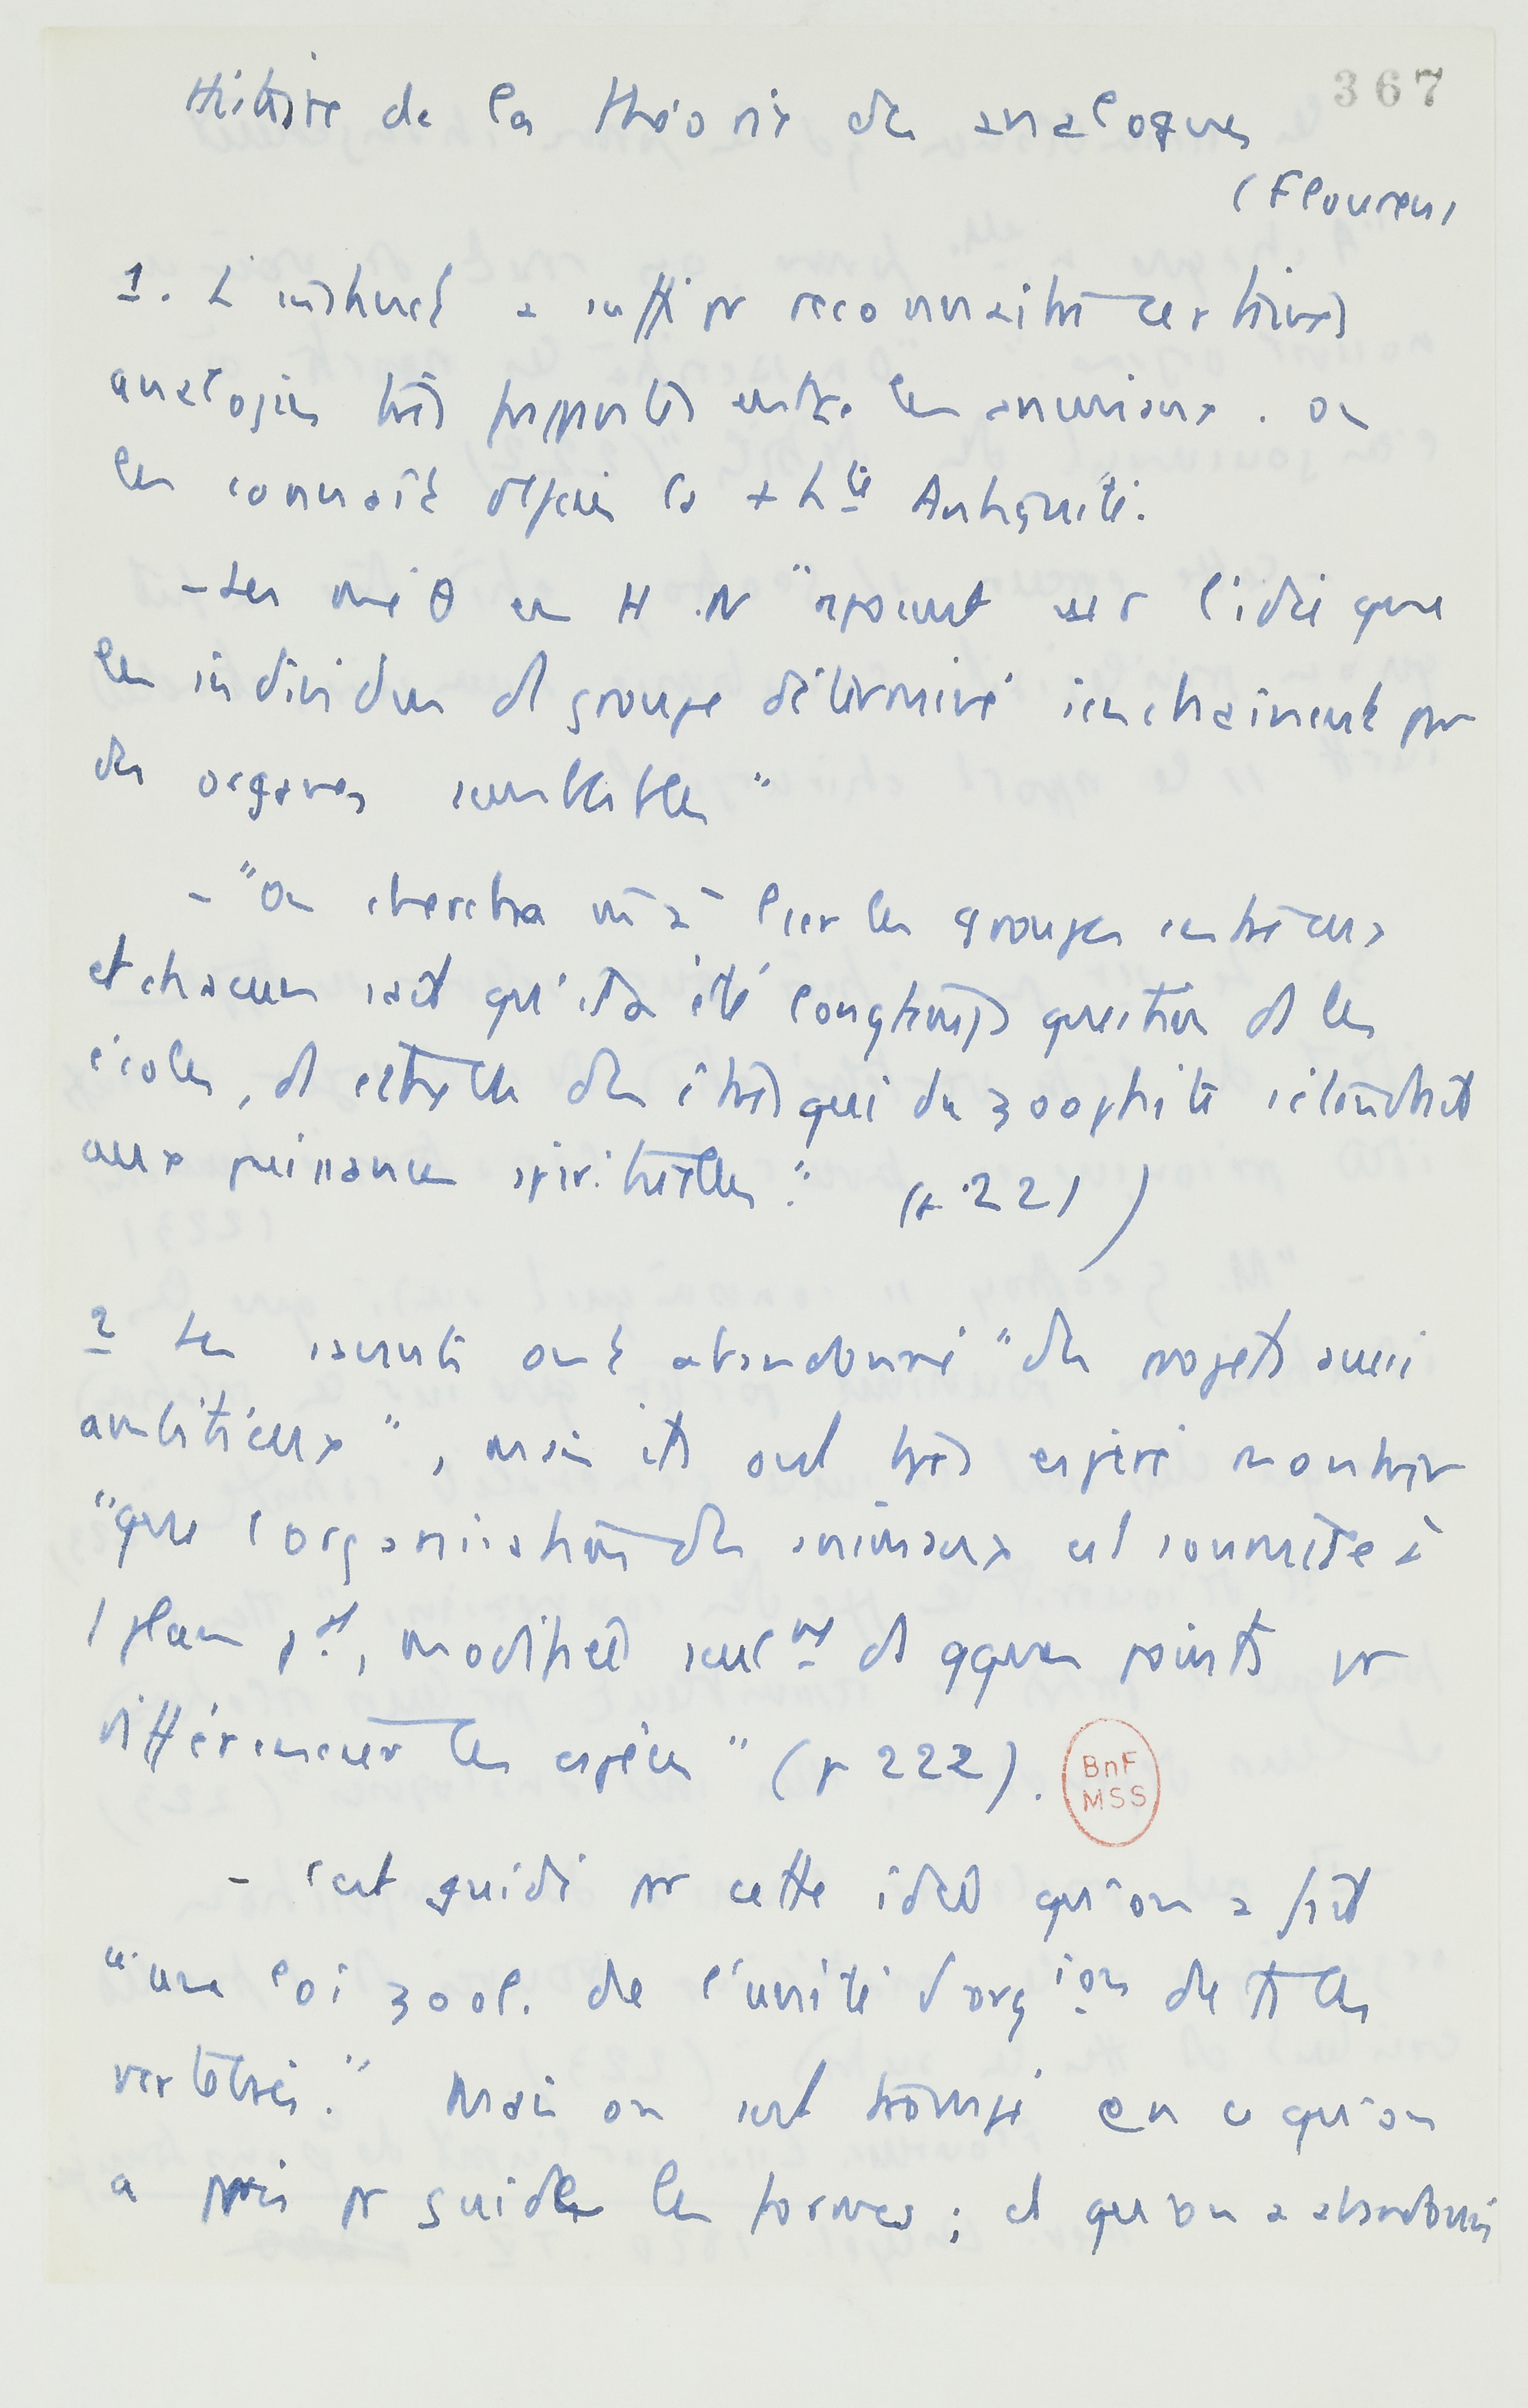 367
Histoire de la théorie des analogues
(Flourens)
1. L'instinct a suffi pr reconnaître certaines
analogies très frappantes entre les animaux. on
les connaît depuis la + hte Antiquité.
- Les méθ en H.N "reposent sur l'idée que
les individus d groupe déterminé s'enchaînent par
des organes semblables"
- "On chercha mê à lier les groupes entre eux
et chacun sait qu'il a été longtemps question ds les
écoles, d' échelle des êtres qui du zoophite s'étendrait
aux puissances spirituelles." (p. 221)
2 Les savants ont abandonné "des projets aussi
ambitieux", mais ils ont très espéré montrer
"que l'organisation des animaux est soumise à
1 plan gal, modifié seult ds qques points pr
différencier les espèces" (p 222).
BnF
MSS
- c'est guidé par cette idée qu'on a fait
"une loi zool. de l'unité d'orgion de ts les
vertébrés." Mais on s'est trompé en ce qu'on
a pris pr guide les formes ; et qu'on a abandonné